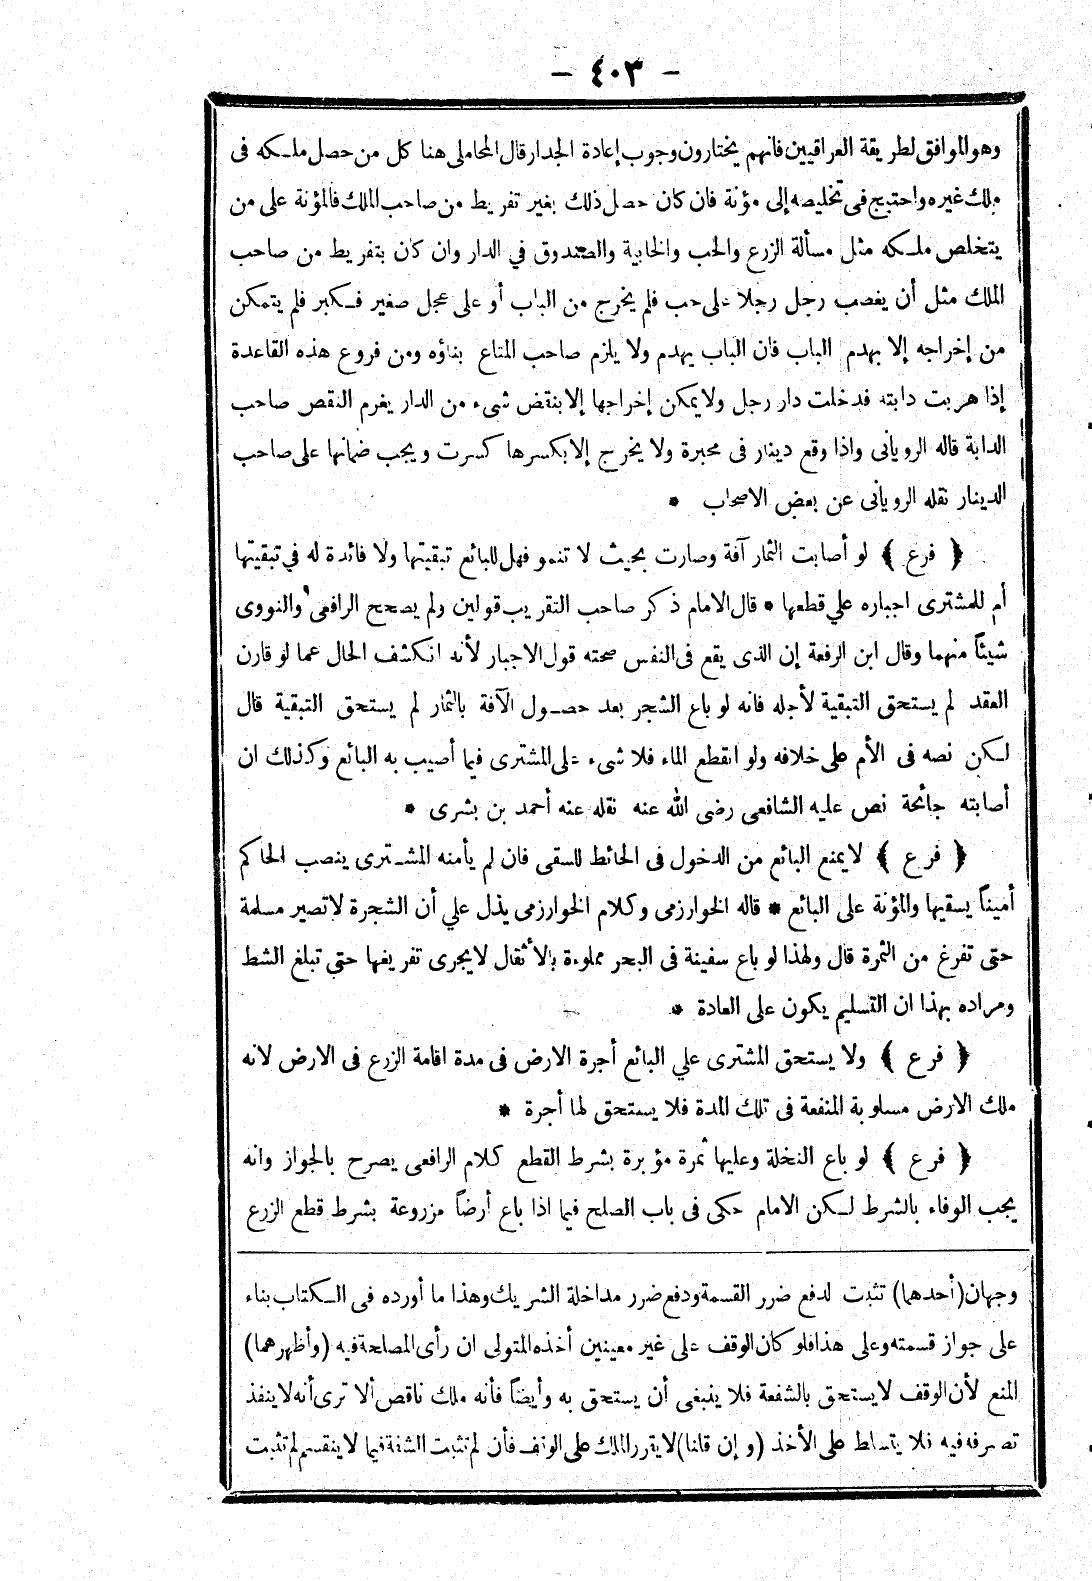 - ٤٠٣ -
وهو الموافق لطريقة العراقيين فانهم يختارون وجوب إعادة الجدار قال المحاملى هنا كل من حصل ملكه فى
ملك غيره واحتيج فى تخليصه إلى مؤنة فان كان حصل ذلك بغير تفريط من صاحب الملك فالمؤنة على من
يتخلص ملكه مثل مسألة الزرع والحب والخابية والصندوق في الدار وان كان بتفريط من صاحب
الملك مثل أن يغصب رجل رجلا على حب فلم يخرج من الباب أو على عجل صغير فكبر فلم يتمكن
من إخراجه إلا بهدم الباب فان الباب يهدم ولا يلزم صاحب المتاع بناؤه ومن فروع هذه القاعدة
إذا هربت دابته فدخلت دار رجل ولا يمكن إخراجها إلا بنقض شىء من الدار يغرم النقص صاحب
الدابة قاله الرويانى واذا وقع دينار فى محبرة ولا يخرج إلا بكسرها كسرت ويجب ضمانها على صاحب
الدينار نقله الرويانى عن بعض الاصحاب *
﴿ فرع ﴾ لو أصابت الثمار آفة وصارت بحيث لا تنمو فهل للبائع تبقيتها ولا فائدة له في تبقيتها
أم للمشترى اجباره علي قطعها * قال الامام ذكر صاحب التقريب قولين ولم يصحح الرافعى والنووى
شيئاً منهما وقال ابن الرفعة إن الذى يقع فى النفس صحته قول الاجبار لأنه انكشف الحال عما لو قارن
العقد لم يستحق التبقية لأجله فانه لو باع الشجر بعد حصول الآفة بالثمار لم يستحق التبقية قال
لكن نصه فى الأم على خلافه ولو انقطع الماء فلا شىء على المشترى فيما أصيب به البائع وكذلك ان
أصابته جائحة نص عليه الشافعى رضى الله عنه نقله عنه أحمد بن بشرى *
﴿ فرع ﴾ لا يمنع البائع من الدخول فى الحائط للسقى فان لم يأمنه المشترى ينصب الحاكم
أميناً يسقيها والمؤنة على البائع * قاله الخوارزمى وكلام الخوارزمى يدل علي أن الشجرة لا تصير مسلمة
حتى تفرغ من الثمرة قال ولهذا لو باع سفينة فى البحر مملوءة بالأثقال لا يجرى تفريغها حتى تبلغ الشط
ومراده بهذا ان التسليم يكون على العادة *
﴿ فرع ﴾ ولا يستحق المشترى علي البائع أجرة الارض فى مدة اقامة الزرع فى الارض لانه
ملك الارض مسلوبة المنفعة فى تلك المدة فلا يستحق لها أجرة *
﴿ فرع ﴾ لو باع النخلة وعليها ثمرة مؤبرة بشرط القطع كلام الرافعى يصرح بالجواز وانه
يجب الوفاء بالشرط لكن الامام حكى فى باب الصلح فيما اذا باع أرضاً مزروعة بشرط قطع الزرع
وجهان (أحدهما) تثبت لدفع ضرر القسمة ودفع ضرر مداخلة الشريك وهذا ما أورده فى الكتاب بناء
على جواز قسمته وعلى هذا فلو كان الوقف على غير معينين أخذه المتولى ان رأى المصلحة فيه (وأظهرهما)
المنع لأن الوقف لا يستحق بالشفعة فلا ينبغى أن يستحق به وأيضاً فأنه ملك ناقص ألا ترى أنه لا ينفذ
تصرفه فيه فلا يتسلط على الأخذ (وإن قلنا) لا يقرر الملك على الوقف فأن لم تثبت الشفعة فيما لا ينقسم لم تثبت